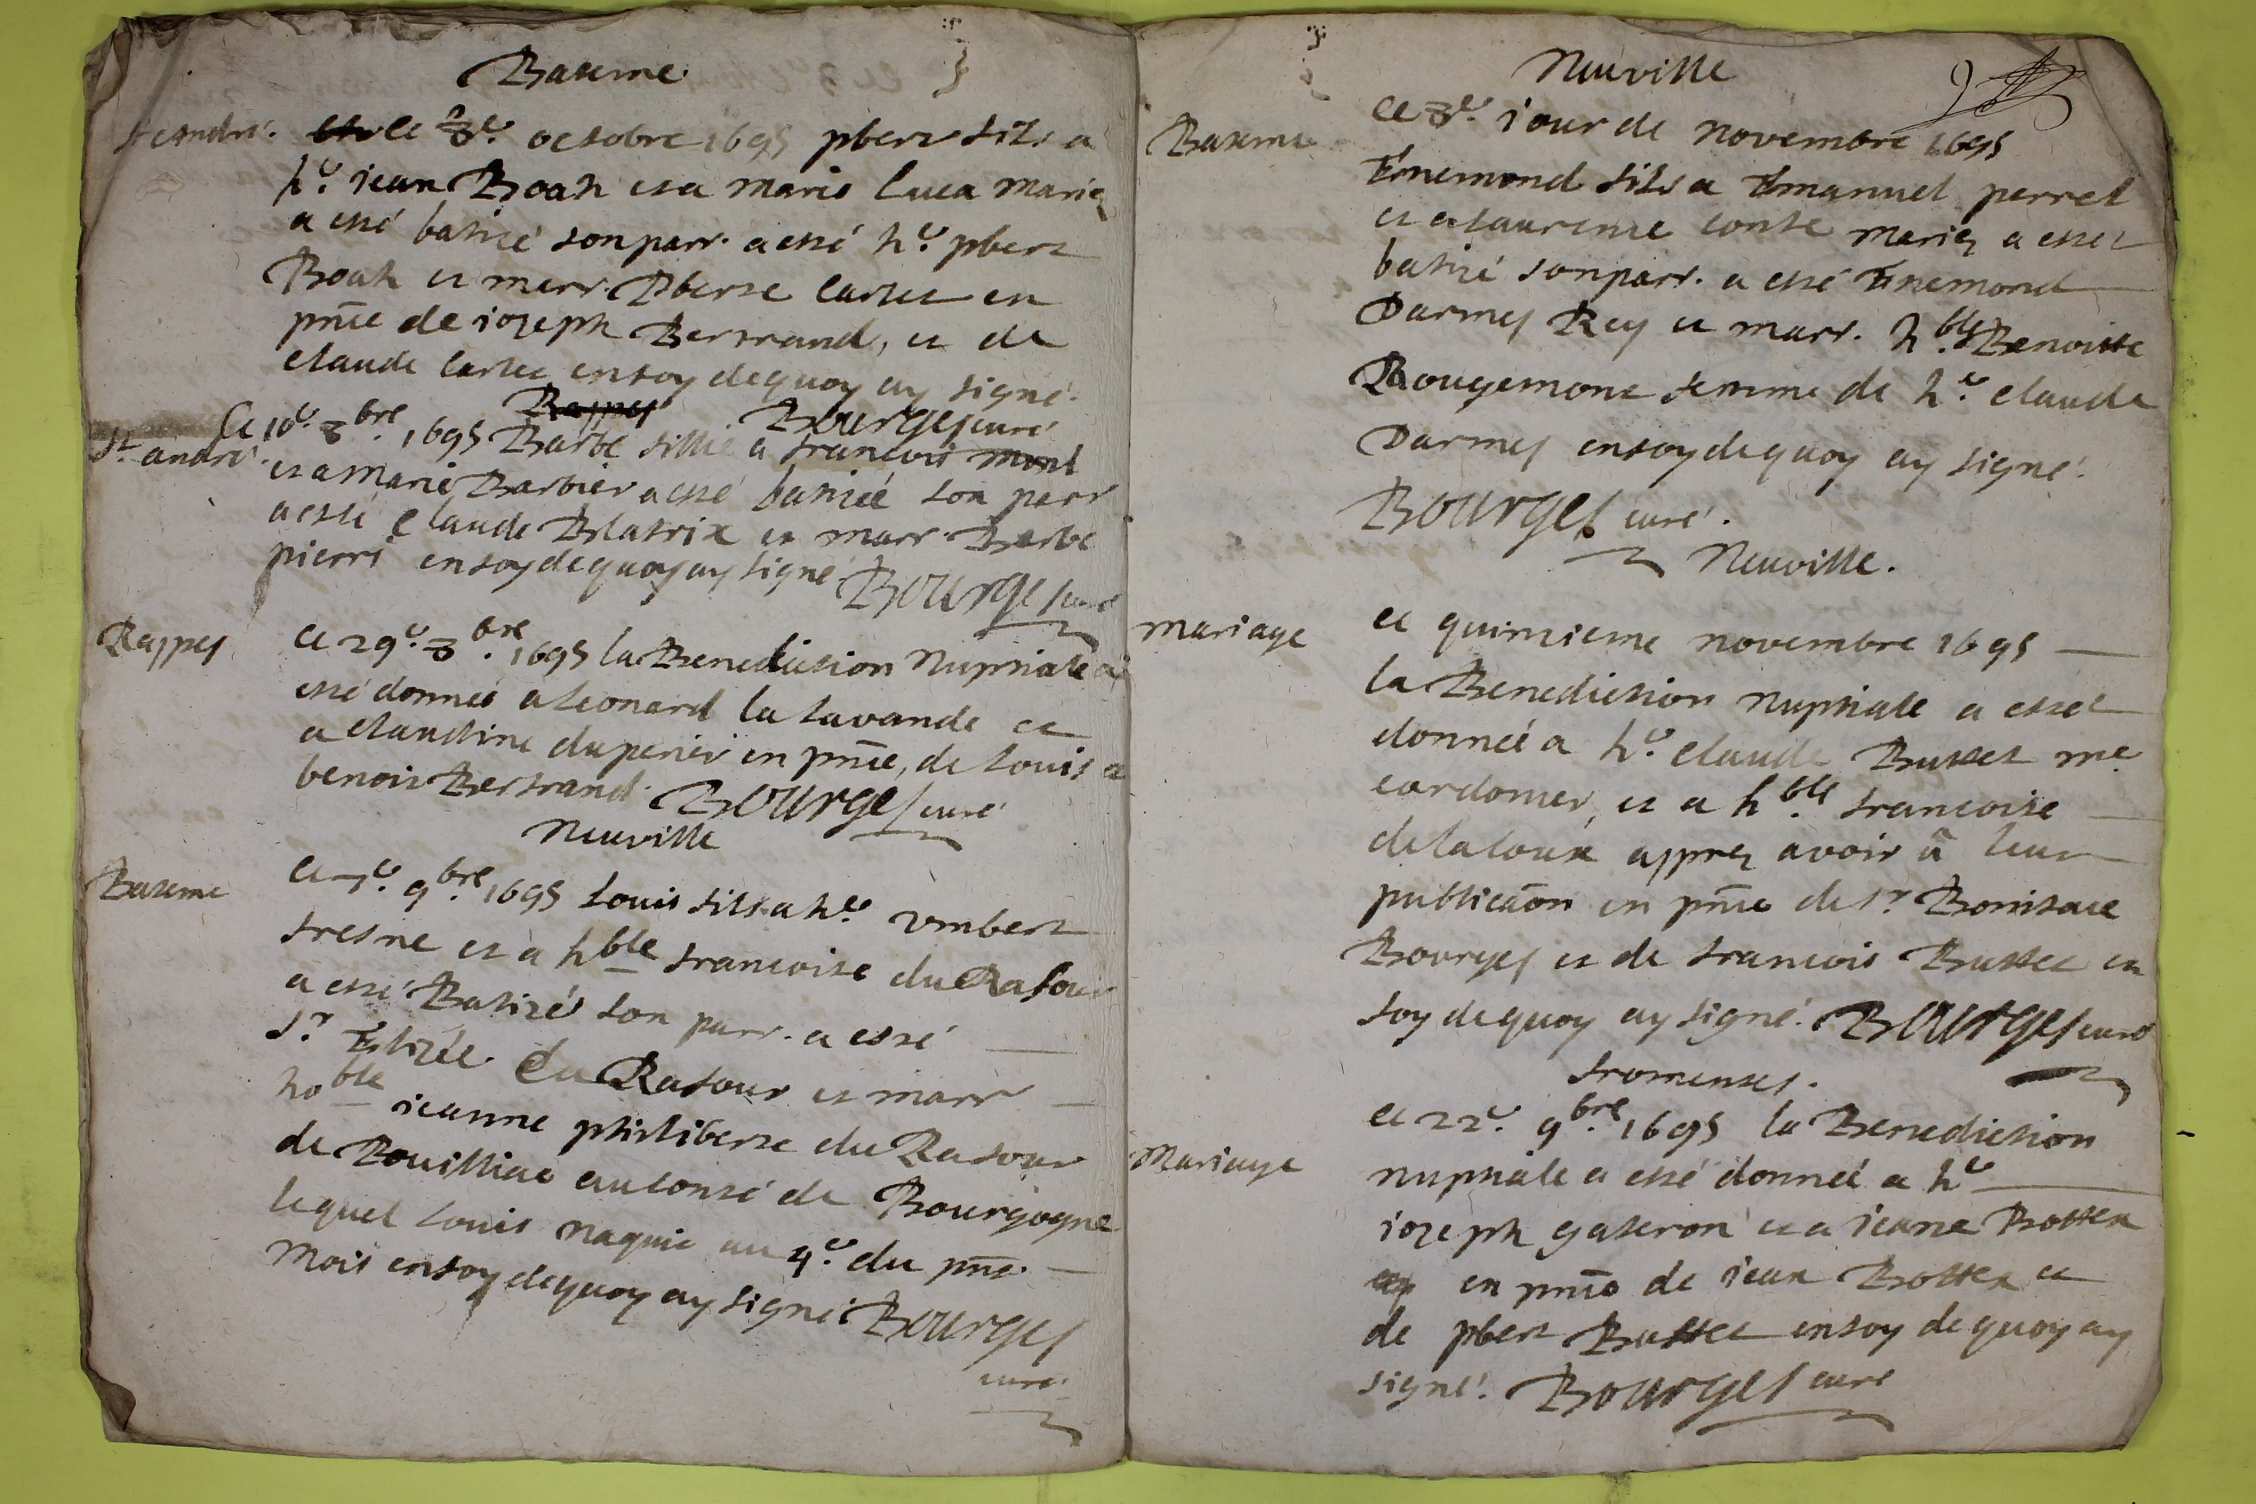 Bateme
St andré. ce 8e. octobre 1695 pbert fils a
he. jean Boah et a marie luca mariez
a esté batizé son parr. a esté he. pbert
Boah et marr. Pberte Cartet en
pn̄ce de jozeph Bertrand, et de
claude Cartet en foy dequoy ay signé.
Rappes Bourges curé
St. andré. Ce 10e. 8bre. 1695 Barbe fillie a francois mont
et a marie Barbier a esté batizée son parr
a esté claude Blatrix et marr. Barbe
pierri en foy dequoy ay signé Bourges curé
Rappes ce 29e. 8bre. 1695 la Benediction Nuptiale a
esté donnée a leonard la lavande et
a claudine duperier en pn̄ce, de louis et
benoit Bertrand. Bourges curé
Neuville
Bateme ce 7e. 9bre. 1695 Louis fils a he. umbert
fresne et a hble francoise du Ratour
a esté Batizé son parr. a esté
Sr. Elizée du Ratour et marr
hoble jeanne philiberte du Ratour
de Bouilliac au conté de Bourgogne
lequel Louis naquit au 4e. du pn̄t.
mois en foy dequoy ay signé: Bourges
curé
Neuville
9
Bateme ce 8e. jour de novembre 1695
Ennemond fils a Emanuel perret
et a laurence conte mariez a esté
batizé son parr. a esté Ennemond
Darmes Rey et marr. hble. Benoitte
Rougemont femme de he. claude
Darmes en foy dequoy ay signé.
Bourges curé.
Neuville.
mariage ce quinzieme novembre 1695
la Benediction nuptiale a esté
donnée a he. claude Buttet me
cordonier, et a hble. francoise
delatoux apprez avoir ū leur
publicāon en pn̄ce de sr. Boniface
Bourges et de francois Buttet en
foy dequoy ay signé. Bourges curé
fromentes.
Mariage ce 22e. 9bre. 1695 la Benediction
nuptiale a esté donnée a he
jozeph gateron et a jeane Bottex
ay en pn̄ce de jean Bottex et
de pbert Buttet en foy de quoy ay
signé. Bourges curé